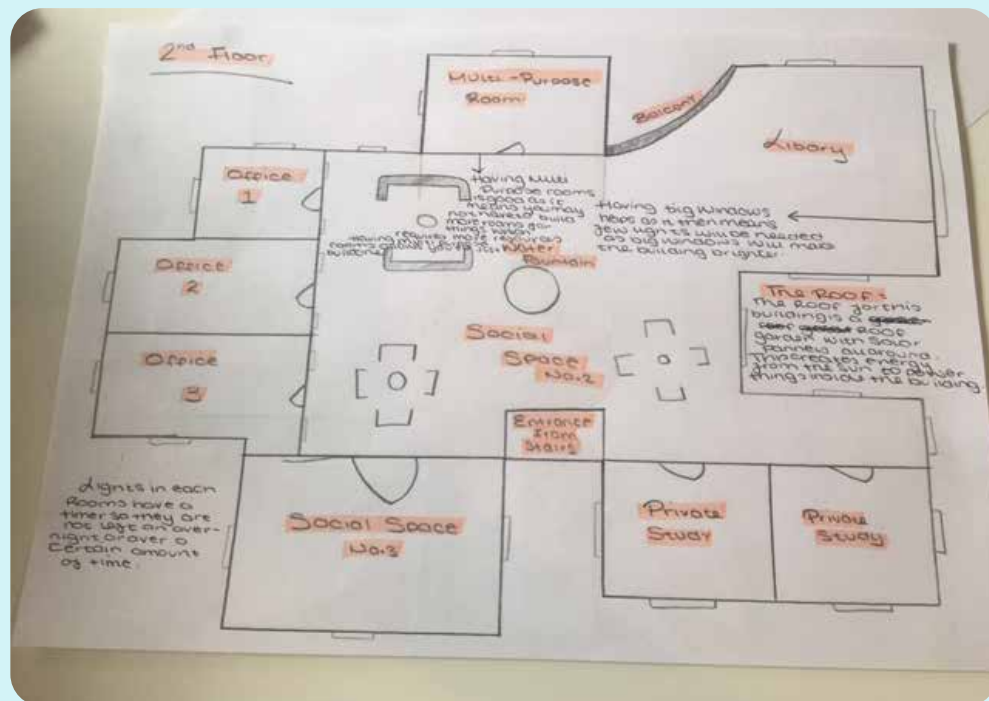 2nd Floor
Multi-Purpose
Room
Balcony
Libary
Office
1
Having Multi
Purpose rooms
is good as it
means you may
not have to build
more rooms for
things when
Having requires more resources
rooms
building
Having big windows
helps as it then means
few lights will be needed
as big windows will make
the building brighter.
Water
Fountain
Office
2
The Roof:
The Roof for this
building is a
Roof
garden with Solar
pannels all around.
This creates energy
from the sun to power
things inside the building.
Social
Space
No.2
Office
3
Entrance
from
Stairs
Lights in each
Rooms have a
timer so they are
not left on over-
night or over a
Certain amount
of time.
Social Space
No.3
Private
Study
Private
Study